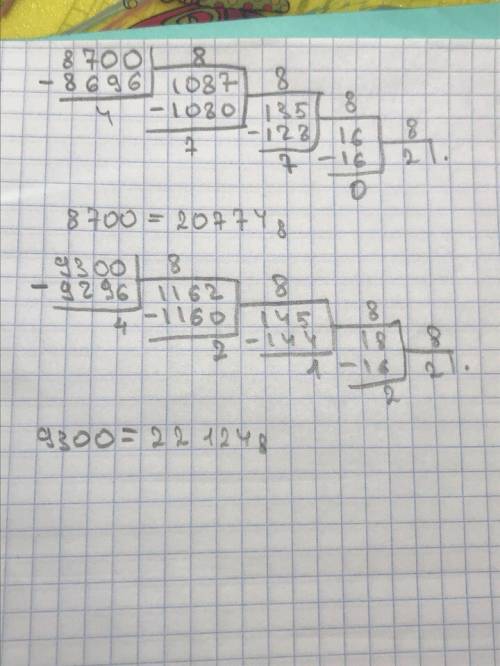 8700 8
- 8696 1087 8
4 - 1080 135 8
7 - 128 16 8
7 - 16 2.
0
8700 = 20774₈
9300 8
- 9296 1162 8
4 - 1160 145 8
2 - 144 18 8
1 - 16 2.
2
9300 = 221248